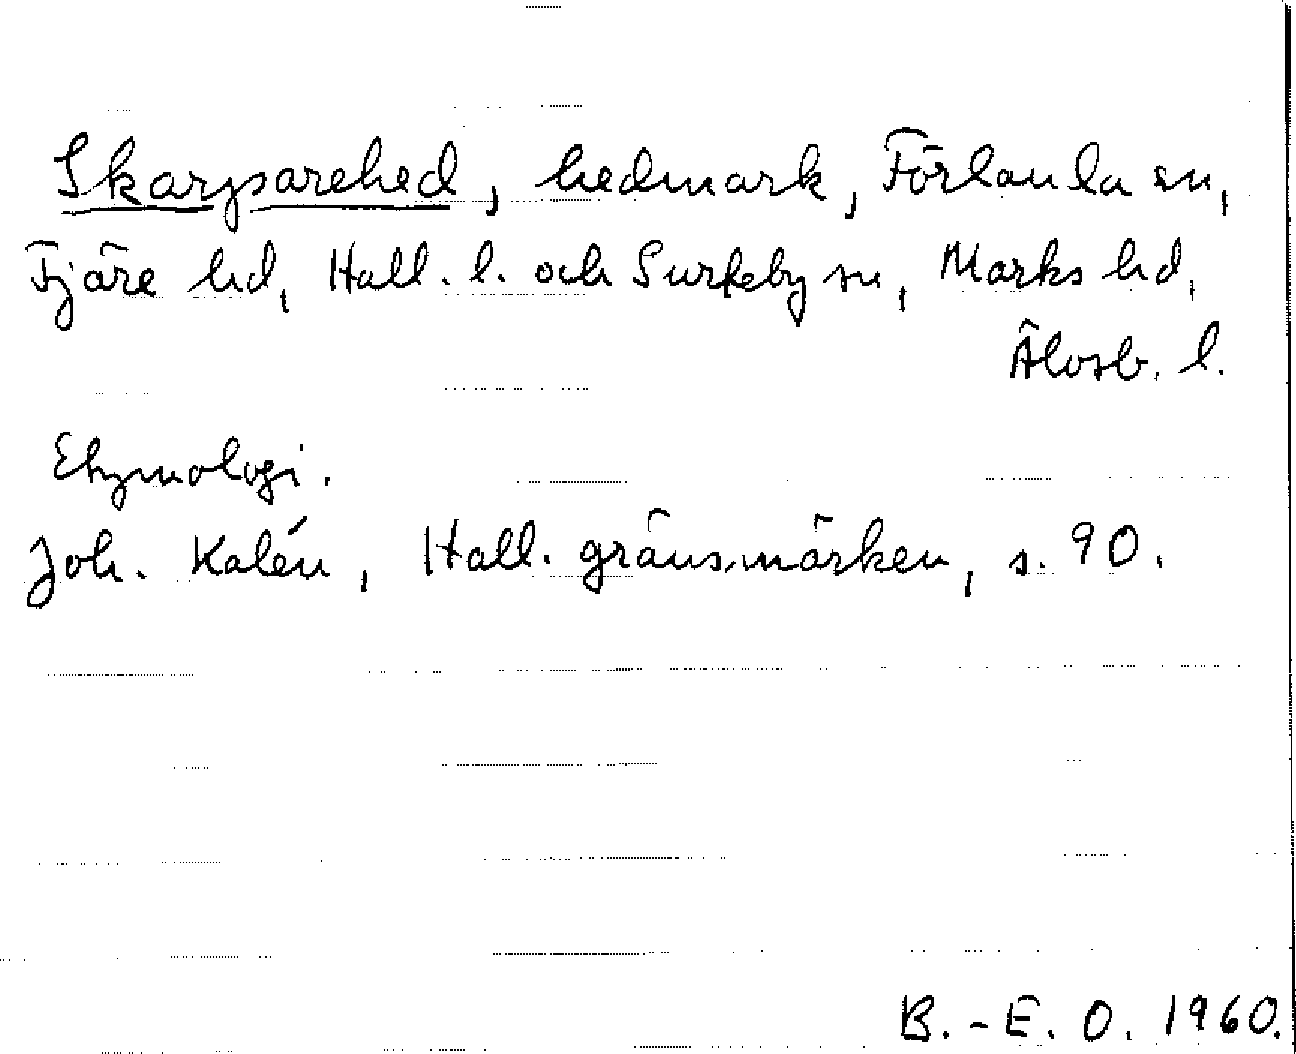 Skarpsarehed, hedmark, Förlanda sn,
Fjäre hd, Hall. l. och Surteby sn, Marks hd,
Älvsb. l.
Etymologi.
Joh. Kalén, Hall. gränsmärken, s. 90.
B.-E. O. 1960.